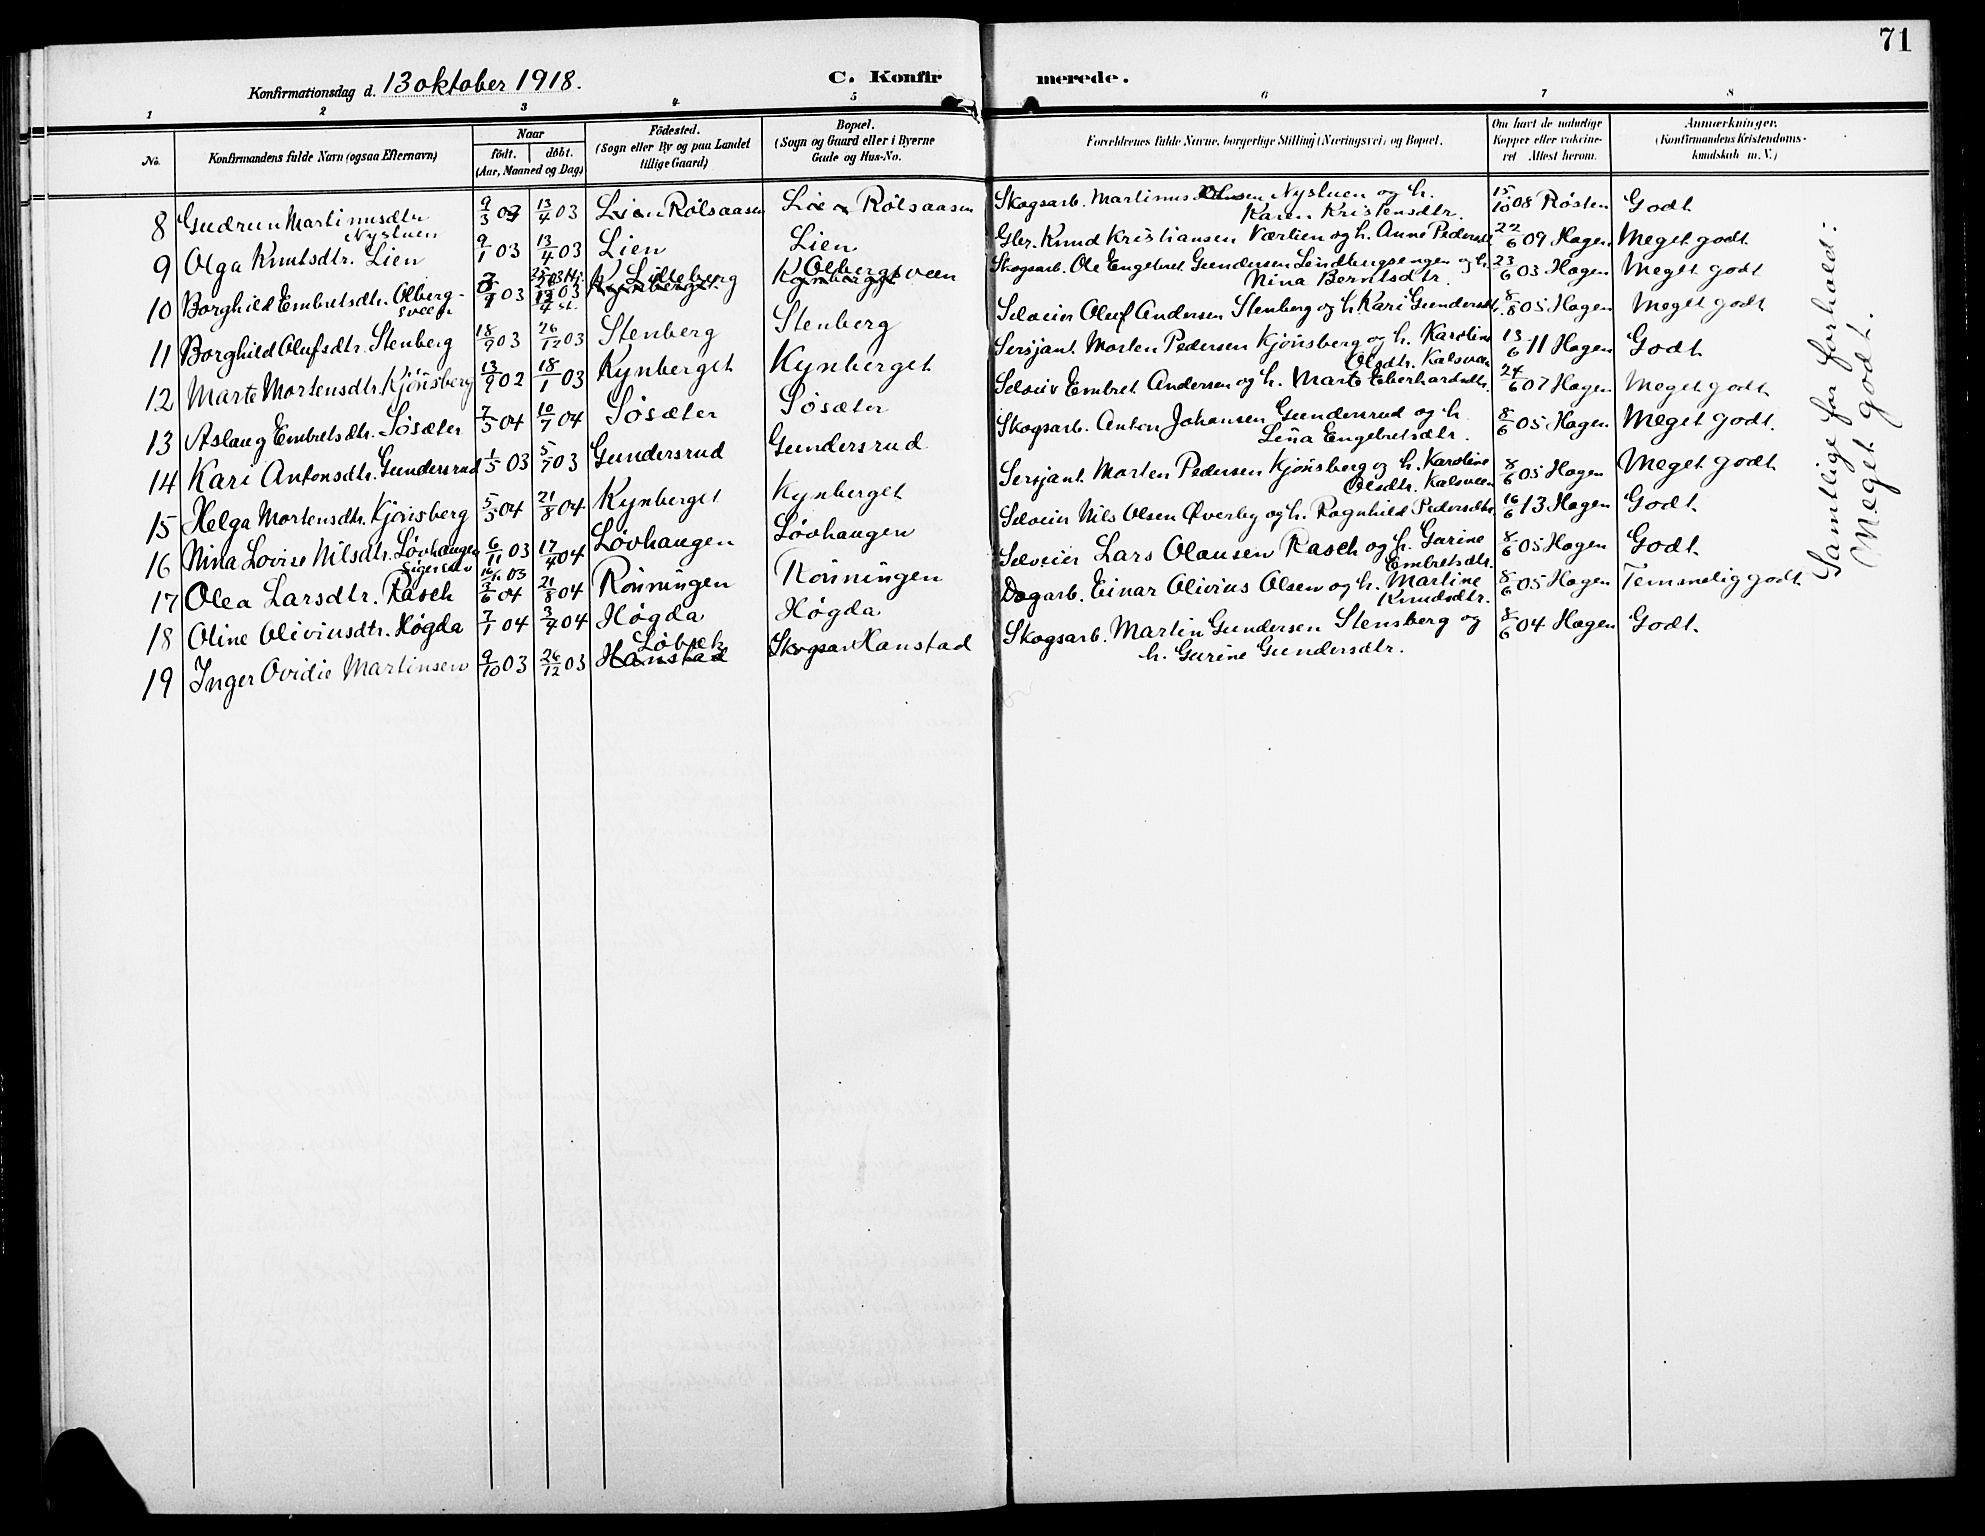 71
Konfirmationsdag d. 13 oktober 1918.
C. Konfirmerede.
1 2 3 4 5 6 7 8
No.
Konfirmandens fulde Navn (ogsaa Efternavn)
Naar
födt. döbt.
(Aar, Maaned og Dag)
Födested.
(Sogn eller By og paa Landet
tillige Gaard)
Bopæl.
(Sogn og Gaard eller i Byerne
Gade og Hus-No.
Forældrenes fulde Navne, borgerlige Stilling (Næringsvei) og Bopæl.
Om havt de naturlige
Kopper eller vakcine-
ret Attest herom.
Anmærkninger.
(Konfirmandens Kristendoms-
kundskab m. V.)
8 Gudrun Martinusdtr Nystuen 9/3 03 13/4 03 Lien Rölsaasen Lien Rölsaasen Skogsarb. Martinus Nystuen og h. Karen Kristensdtr. 15/10 08 Røsten Godt
9 Olga Knutsdtr. Lien 9/1 03 13/4 03 Lien Lien Gbr. Knud Kristiansen Værlien og h. Anne Pedersdtr 22/6 09 Hagen Meget godt
10 Borghild Embretsdtr. Olberg-sveen 03 13/4 03 Kynberget Kynberget Olbergsveen Skogsarb. Ole Engebret Gundersen Lindbergsengen og h. Nina Berntsdtr. 23/6 03 Hagen Meget godt
11 Borghild Olufsdtr. Stenberg 18/9 03 26/12 03 Stenberg Stenberg Selveier Oluf Andersen Stenberg og h. Kari Gundersdtr. 8/8 05 Hagen Meget godt
12 Marte Mortensdtr. Kjönsberg 13/9 02 18/1 03 Kynberget Kynberget Sersjant Morten Pedersen Kjönsberg og h. Karoline Olsdtr. Kalsveen 13/6 11 Hagen Godt
13 Aslaug Embretsdtr. Søsæter 7/5 04 10/7 04 Søsæter Søsæter Selveier Embret Andersen og h. Marte Eberhardsdtr. 24/6 07 Hagen Meget godt
14 Kari Antonsdtr. Gundersrud 1/5 03 5/7 03 Gundersrud Gundersrud Skogsarb. Anton Johansen Gundersrud og h. Lina Engebretsdtr. 8/6 05 Hagen Meget godt.
15 Helga Mortensdtr. Kjönsberg 5/5 04 21/8 04 Kynberget Kynberget Sersjant Morten Pedersen Kjönsberg og h. Karoline Olsdtr. Kalsveen 8/6 05 Hagen Meget godt
16 Nina Lovise Nilsdtr. Løvhaugen 6/11 03 17/4 04 Løvhaugen Løvhaugen Selveier Nils Olsen Øverby og h. Ragnhild Pedersdtr. 16/6 13 Hagen Godt
17 Olea Larsdtr. Rasch 04 21/8 04 Rönningen Rönningen Selveier Lars Olausen Rasch og h. Gurine Embretsdtr. 8/6 05 Hagen Godt
18 Oline Oliviusdtr. Høgda 7/1 04 3/4 04 Høgda Høgda Dagarb. Einar Olivius Olsen og h. Martine Knudsdtr. 8/6 05 Hagen Temmelig godt
19 Inger Ovidie Martinsen 9/10 03 26/12 03 Hanstad Hanstad Skogsarb. Martin Gundersen Stensberg og h. Gurine Gundersdtr. 8/6 04 Hagen Godt
Samtlige for forhold:
Meget godt.